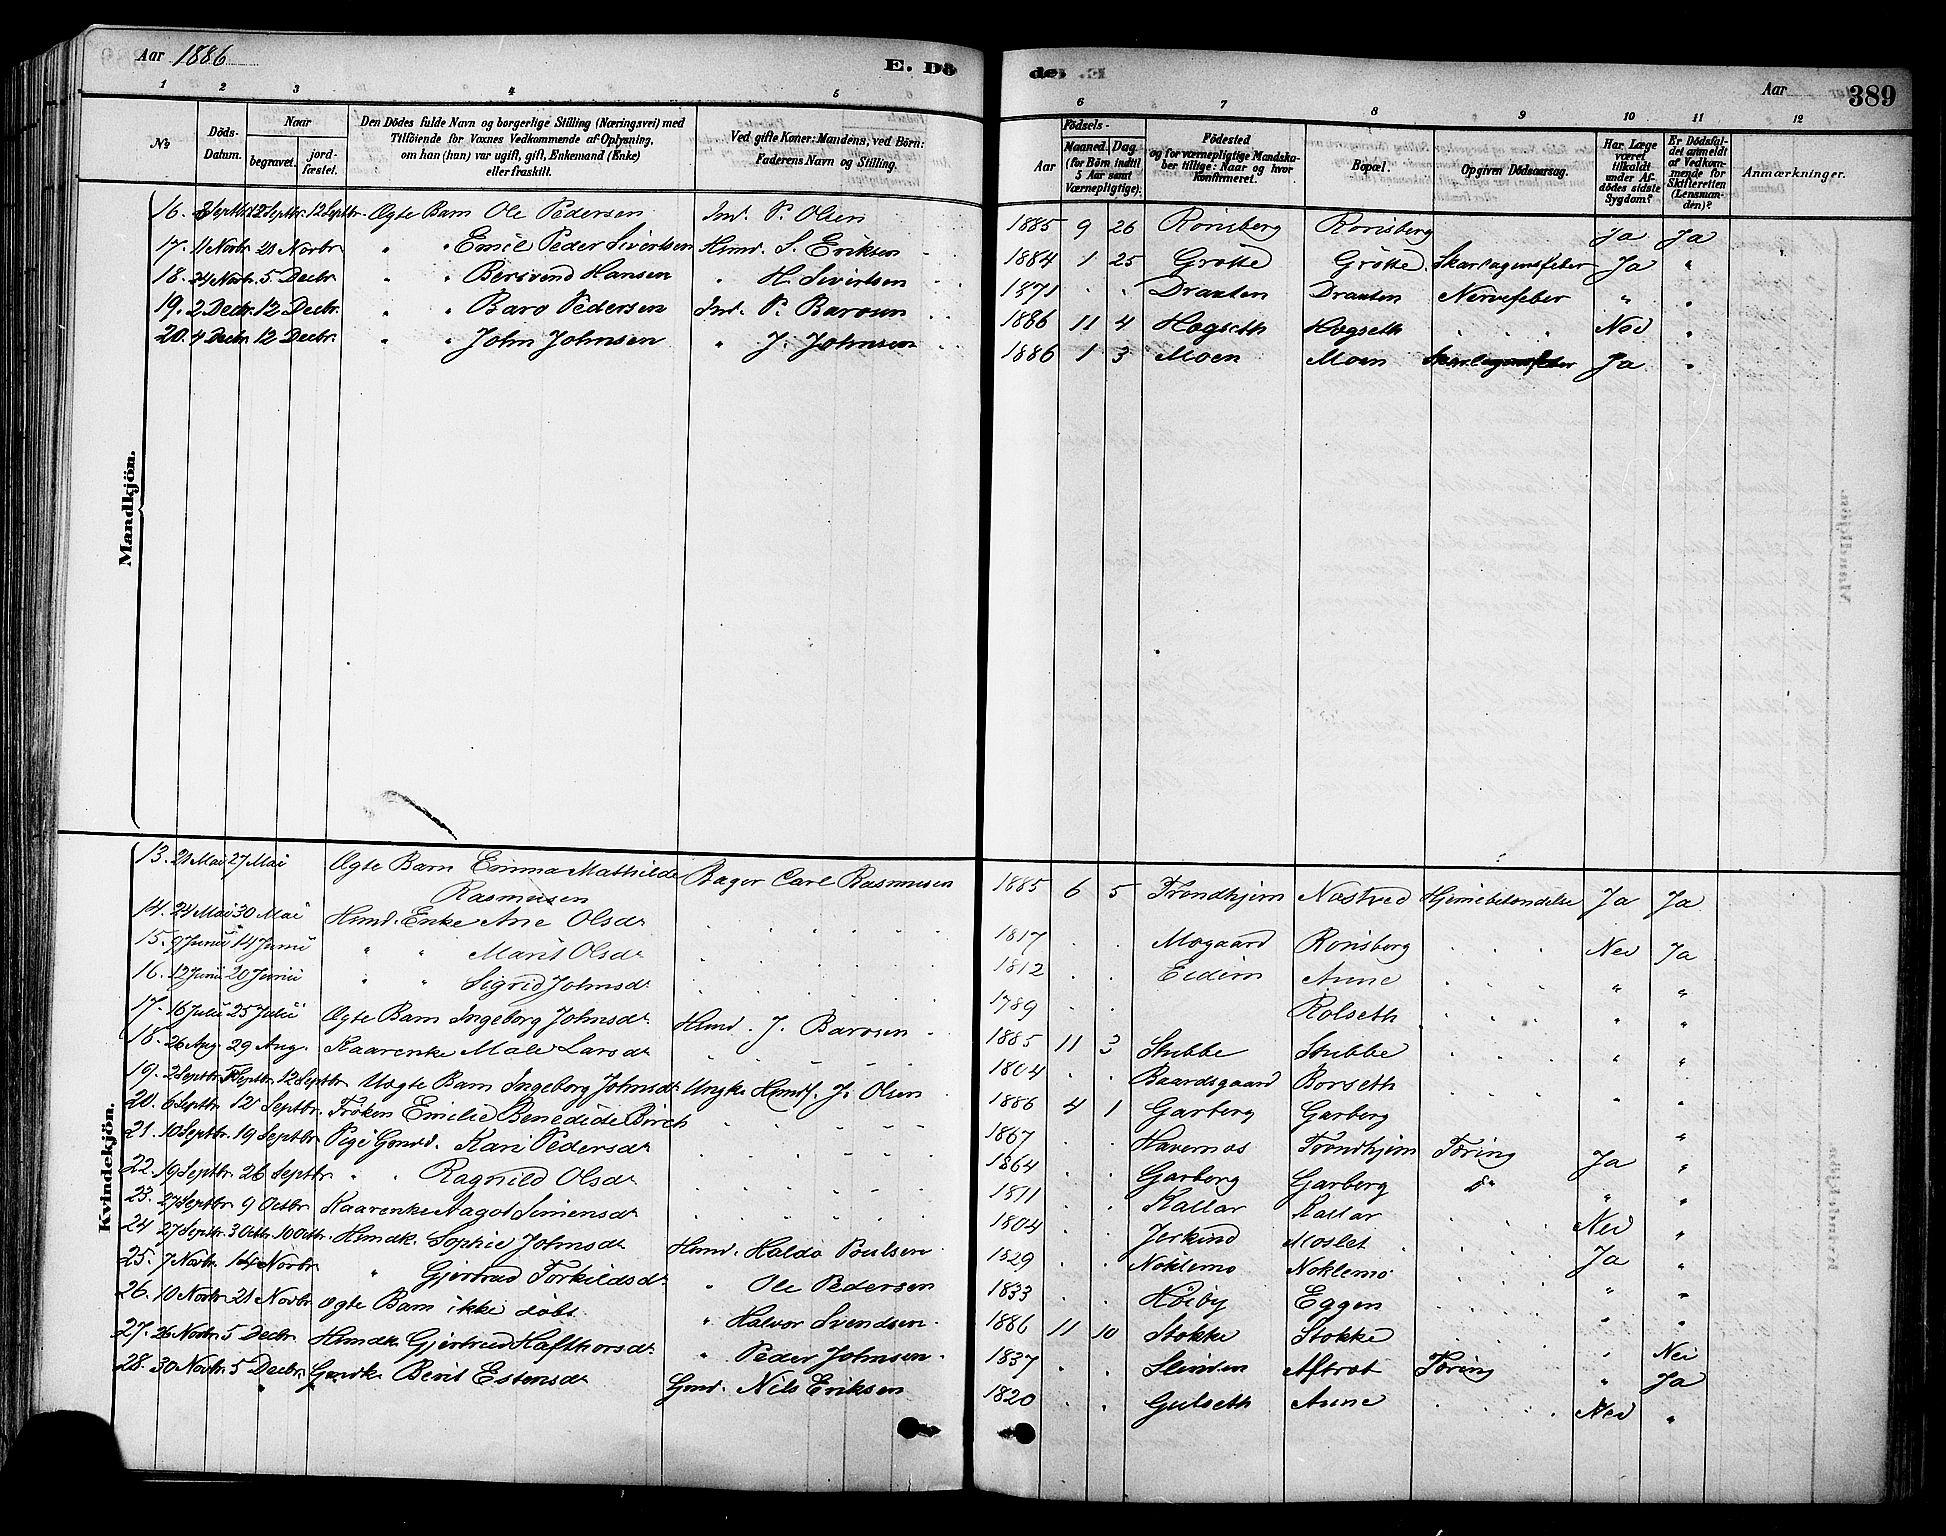 Aar 1886
E. Dö
de. E.
Aar
389
1 2 3 4 5 6 7 8 9 10 11 12
No
Döds-Datum.
Naar begravet. jordfæstet.
Den Dödes fulde Navn og borgerlige Stilling (Næringsvei) med Tilföiende for Voxnes Vedkommende af Oplysning, om han (hun) var ugift, gift, Enkemand (Enke) eller fraskilt.
Ved gifte Koner: Mandens, ved Börn: Faderens Navn og Stilling.
Födsels-
Aar
Maaned. Dag (for Börn indtil 5 Aar samt Værnepligtige).
Födested og for værnepligtige Mandskaber tillige: Naar og hvor konfirmeret.
Bopæl.
Opgiven Dödsaarsag.
Har Læge været tilkaldt under Afdödes sidste Sygdom?
Er Dödsfaldet anmeldt af Vedkommende for Skifteretten (Lensmanden)?
Anmærkninger.
Mandkjön.
16. Septbr 12 Septbr. 12 Septbr. Ægte Barn Ole Pedersen Ind. P. Olsen 1885 9 26 Ronsberg Ronsberg Ja Ja
17. 11 Novbr 21 Novbr " " Emil Peder Sivertsen Hmd. S. Eriksen 1884 1 25 Grötte Grötte Skarlagensfeber Ja "
18. 24 Novbr. 5 Decbr " " Bersvend Hansen " H. Sivertsen 1871 . . Draxten Draxten Nervefeber " "
19. 2 Decbr. 12 Decbr. " " Baro Pedersen Ind. P. Baroun 1886 11 4 Hogseth Hogseth . . . Nei "
20. 4 Decbr. 12 Decbr. " " John Johnsen " J. Johnsen 1886 1 3 Moen Moen Skarlagensfeber Ja "
Kvindekjön.
13. 21 Mai 27 Mai Ægte Barn Emma Mathilde Rasmusen Bager Carl Rasmusen 1885 6 5 Trondhjem Nostved Hjernebetændelse Ja Ja
14. 24 Mai 30 Mai Hmd. Enke Ane Olsdr 1817 . . Mogaard Ronsberg . . . Nei Ja
15. 9 Junii 14 Junii " " Marit Olsdr 1812 . . Eidem Aune . . . " "
16. 12 Junii 20 Junii " " Sigrid Johnsdr. 1789 . . Rolseth . . . " "
17. 16 Julii 25 Julii Ægte Barn Ingeborg Johnsdr. Hmd. J. Barosen 1885 11 3 Stubbe Stubbe . . . " "
18. 26 Aug. 29 Aug. Kaarenke Male Larsdr 1804 . . Baardsgaard Borseth . . . " "
19. 2 Septbr. Septbr. 12 Septbr Uægte Barn Ingeborg Johnsdr Ungka Hmd. J. Olsen 1886 4 1 Garberg Garberg " "
20. 6 Septbr. 12 Septbr. Fröken Emilie Benedide Birch 1867 . . Havernos Trondhjem Tæring Ja "
21. 10 Septbr. 19 Septbr. Pige Gmd. Kari Pedersdr 1864 . . Garberg Garberg do " "
22. 19 Septbr. 26 Septbr " " Ragnild Olsdr 1811 . . Kallar Kallar . . . Nei "
23. 27 Septbr. 9 Octbr Kaarenke Aagot Simensdr. 1804 . . Jerkind Moslet . . . Ja "
24 27 Septbr. 3 Octbr. 10 Octbr. Hmdk. Sophie Johnsdr Hmd. Haldo Poulsen 1829 . . Noklemo Noklemo . . . " "
25. 7 Novbr. 14 Novbr. " Gjertrud Torkildsdr " Ole Pedersen 1833 . . Höiby Eggen . . . " "
26. 10 Novbr 21 Novbr Ægte Barn ikke döbt. " Halvor Svendsen 1886 11 10 Stokke Stokke . . . " Nei
27. 26 Novbr. 5 Decbr. Hmdk Gjertrud Hafthorsdr. " Peder Johnsen 1837 . . Slinden Aftret Tæring " Ja
28. 30 Novbr. 5 Decbr. Gmdk Berit Estensdr Gmd. Nils Eriksen 1820 . . Gulseth Aune . . . Nei "